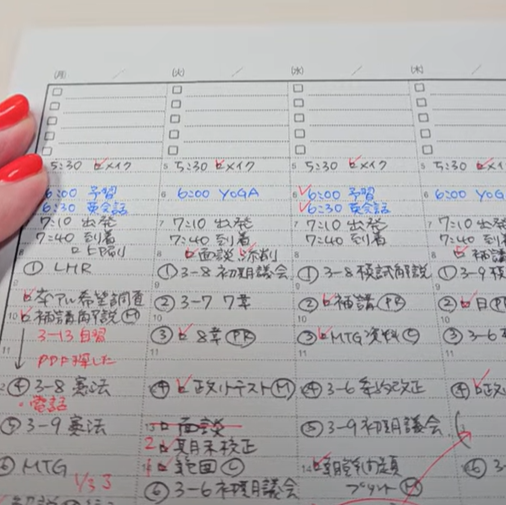 (月)
(火)
(水)
(木)
5:30 メイク
6:00 予習
6:30 英会話
7:10 出発
7:40 到着
印刷
① LHR
希望調査
10 補講解説 Ⓜ
3-13 自習
11 PDF探した
④ 3-8 憲法
・電話
⑤ 3-9 憲法
⑥ MTG
1/33
5 5:30 メイク
6 6:00 YOGA
7 7:10 出発
7:40 到着
8 面談 添削
① 3-8 初期議会
② 3-7 7章
10
③ 8章 PR
11
④ 正文リテスト Ⓜ
面談
2 期末校正
範囲 Ⓒ
⑥ 3-6 初期議会
5 5:30 メイク
6 6:00 予習
6:30 英会話
7 7:10 出発
7:40 到着
8
① 3-8 模試解説
② 補講 PR
10
③ MTG 資料 Ⓒ
11
④ 3-6 条約改正
⑤ 3-9 初期議会
プリント Ⓜ
5 5:30 メイ
6 6:00 YOG
7 7:10 出発
7:40 到着
8 補講
① 3-9 模
② 日 PR
10
③ 3-6
11
④
⑥ 3-